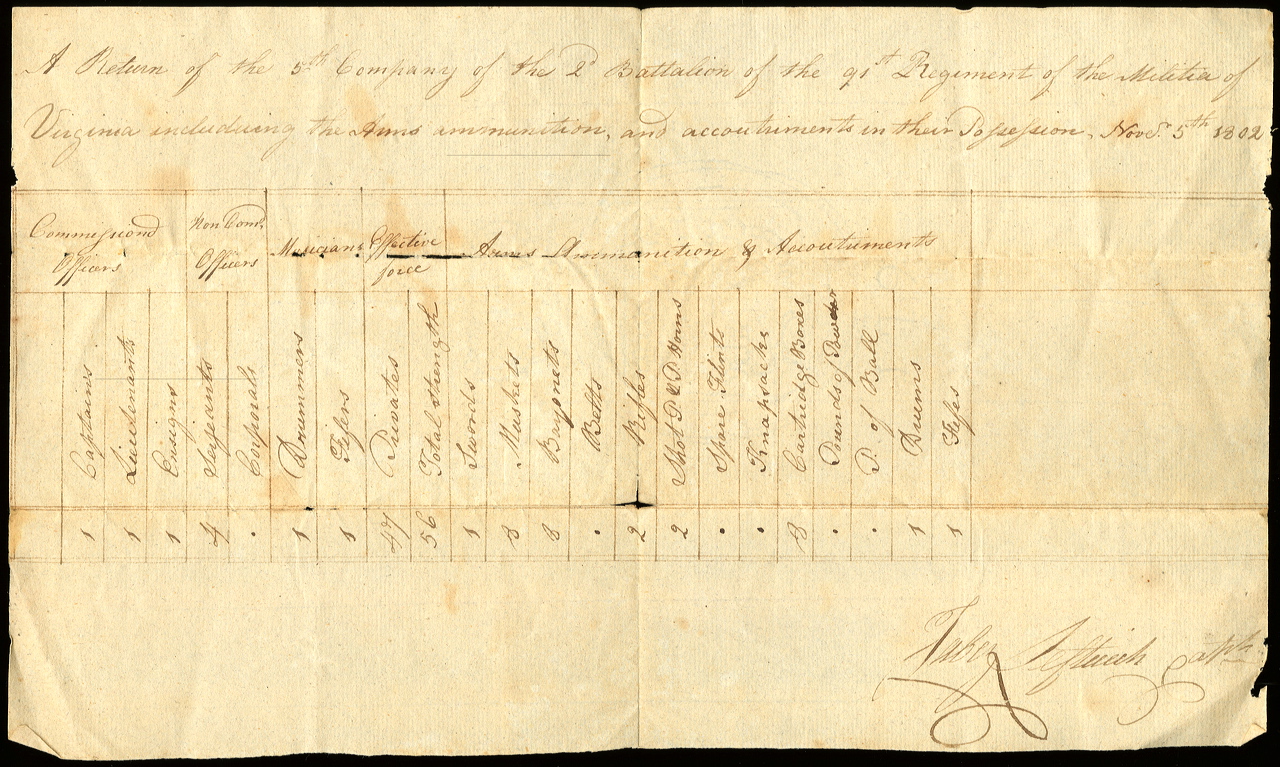 A Return of the 5th Company of the 2d Battalion of the 91st Regiment of the Militia of
Virginia includuing the Arms ammunition, and accoutriments in their Possession, Novr. 5th 1802
Commissiond
Officers
Non Comd.
Officers
Musicians
Effective
force
Arms Ammunition & Accoutriments
Captains
Lieutenants
Ensigns
Serjeants
Corporals
Drummers
Fifers
Privates
Total strength
Swords
Muskets
Bayonets
Belts
Rifles
Shot P & P Horns
Spare Flints
Knapsacks
Cartridge Boxes
Pounds of Powder
P. of Ball
Drums
Fifes
1 1 1 4 . 1 1 47 56 1 8 8 . 2 2 . . 8 . . 1 1
Jabez Leftwich Captn